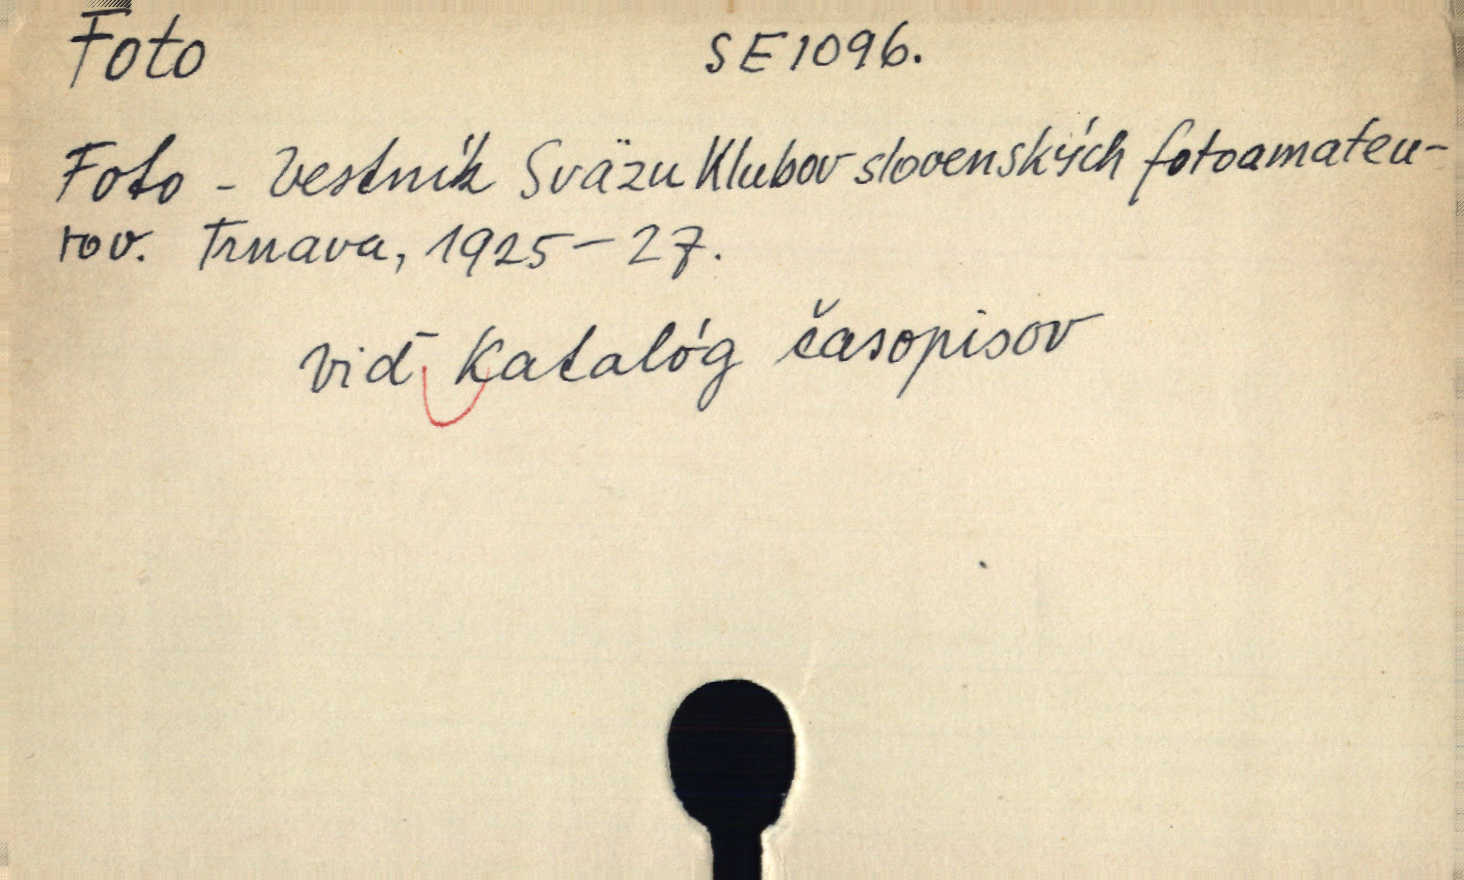 Foto SE1096.
Foto - Vestník Sväzu Klubov slovenských fotoamateu-
rov. Trnava, 1925-27.
viď Katalóg časopisov